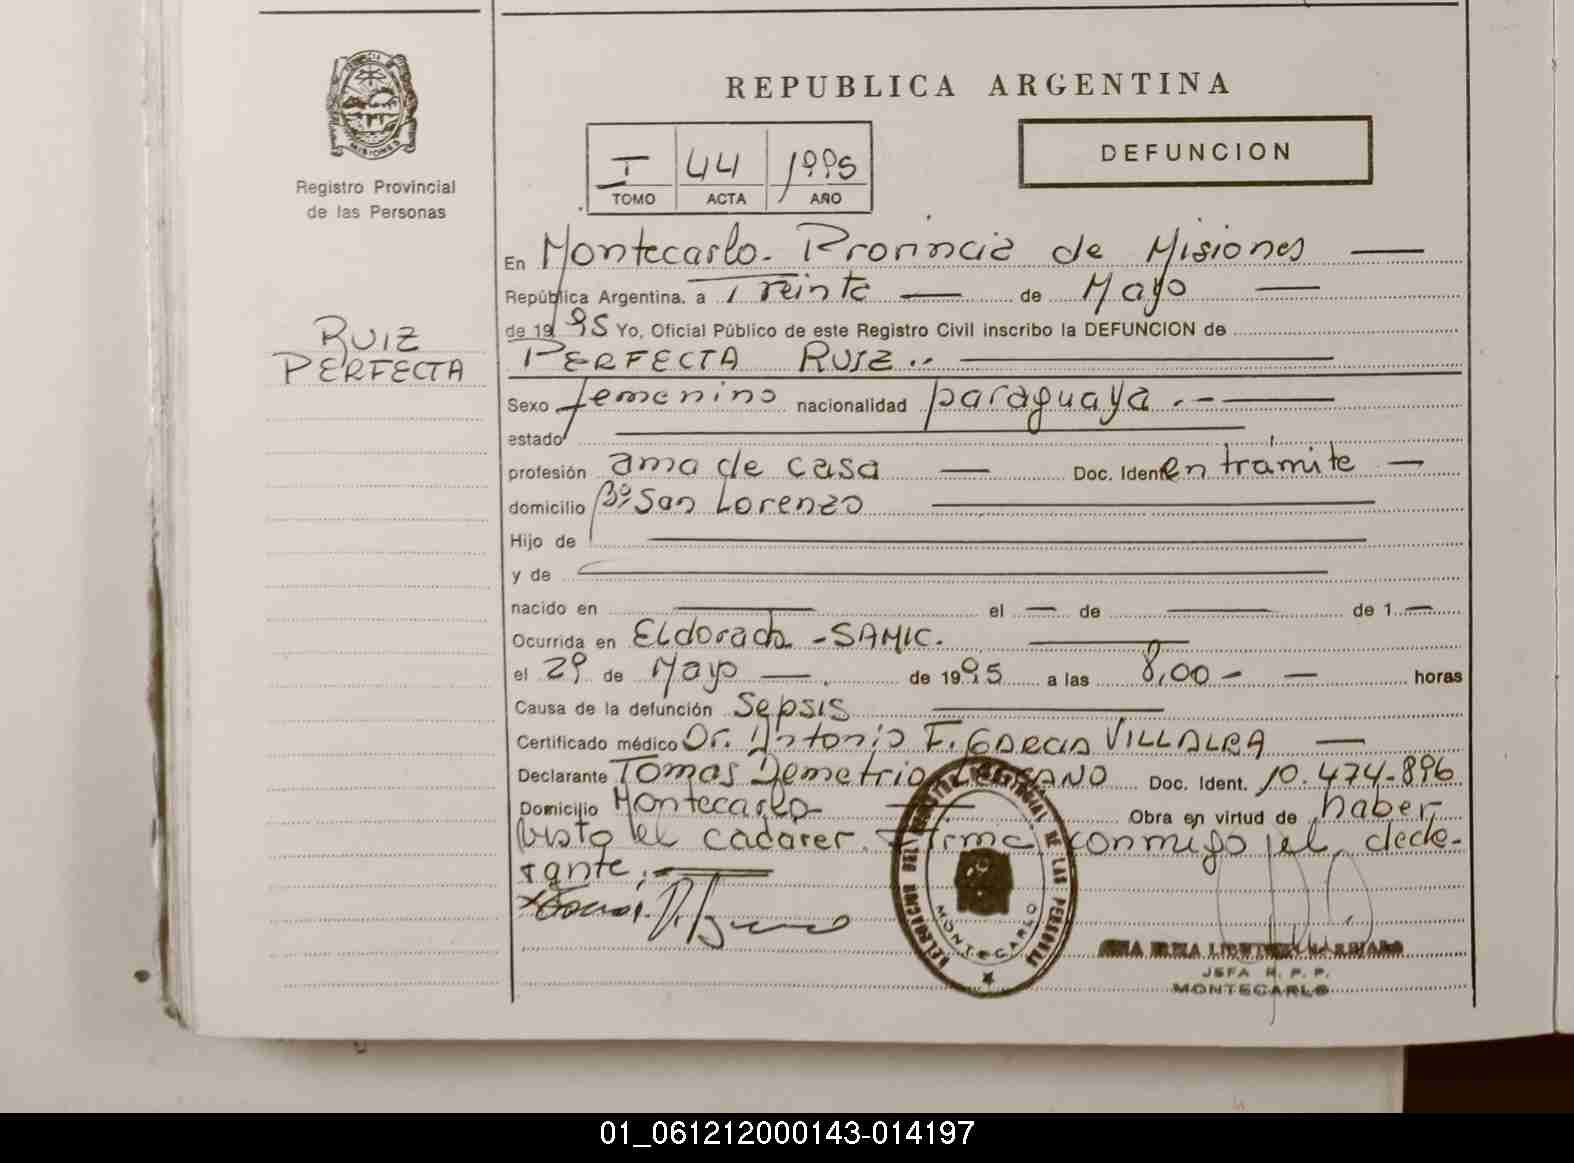 REPUBLICA ARGENTINA
PROVINCIA DE
MISIONES
Registro Provincial
de las Personas
I 44 1995
TOMO ACTA AÑO
DEFUNCION
RUIZ
PERFECTA
En Montecarlo. Provincia de Misiones
República Argentina, a Treinta de Mayo
de 1995 Yo, Oficial Público de este Registro Civil inscribo la DEFUNCION de
PERFECTA RUIZ..
Sexo femenino nacionalidad paraguaya.--
estado
profesión ama de casa Doc. Ident. en trámite
domicilio Bº San Lorenzo
Hijo de
y de
nacido en el de de 1
Ocurrida en Eldorado - SAMIC.
el 29 de Mayo de 1995 a las 8,00 horas
Causa de la defunción Sepsis
Certificado médico Dr. Antonio F. GARCIA VILLALBA
Declarante TOMAS Demetrio Doc. Ident. 10.474.896
Domicilio Montecarlo Obra en virtud de haber
visto el cadáver. Firma conmigo el decla-
rante.
DELEGACION DEL REGISTRO PROVINCIAL DE LAS PERSONAS
MONTECARLO
JEFA R. P. P.
MONTECARLO
01_061212000143-014197